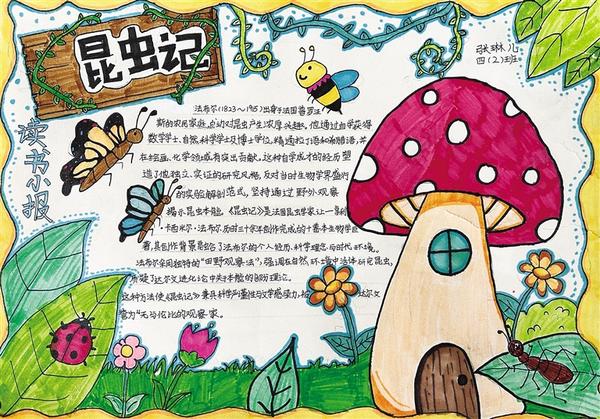 昆虫记
张琳儿
四(2)班
读书小报
法布尔(1823～1915)出身于法国普罗旺
斯的农民家庭,自幼对昆虫产生浓厚兴趣。他通过自学获得
数学学士、自然科学学士及博士学位,精通拉丁语和希腊语,并
在绘画、化学领域有突出贡献。这种自学成才的经历塑
造了他独立、实证的研究风格,反对当时生物学界盛行
的实验解剖范式,坚持通过野外观察
揭示昆虫本能。《昆虫记》是法国昆虫学家让-亨利
卡西米尔·法布尔历时三十余年创作完成的十卷本生物学巨
著,其创作背景融合了法布尔的个人经历、科学理念与时代环境。
法布尔采用独特的“田野观察法”,强调在自然环境中活体研究昆虫,
质疑了达尔文进化论中关于本能的部分理论。
这种方法使《昆虫记》兼具科学严谨性与文学感染力,被 达尔文
誉为“无与伦比的观察家。